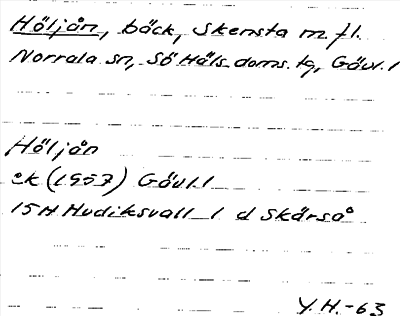 Höljån, bäck, Skensta m.fl.
Norrala sn, Sö Häls. doms. tg, Gävl. l
Höljån
ek (1957) Gävl. l
15H Hudiksvall 1 d Skärså
Y.H.-63